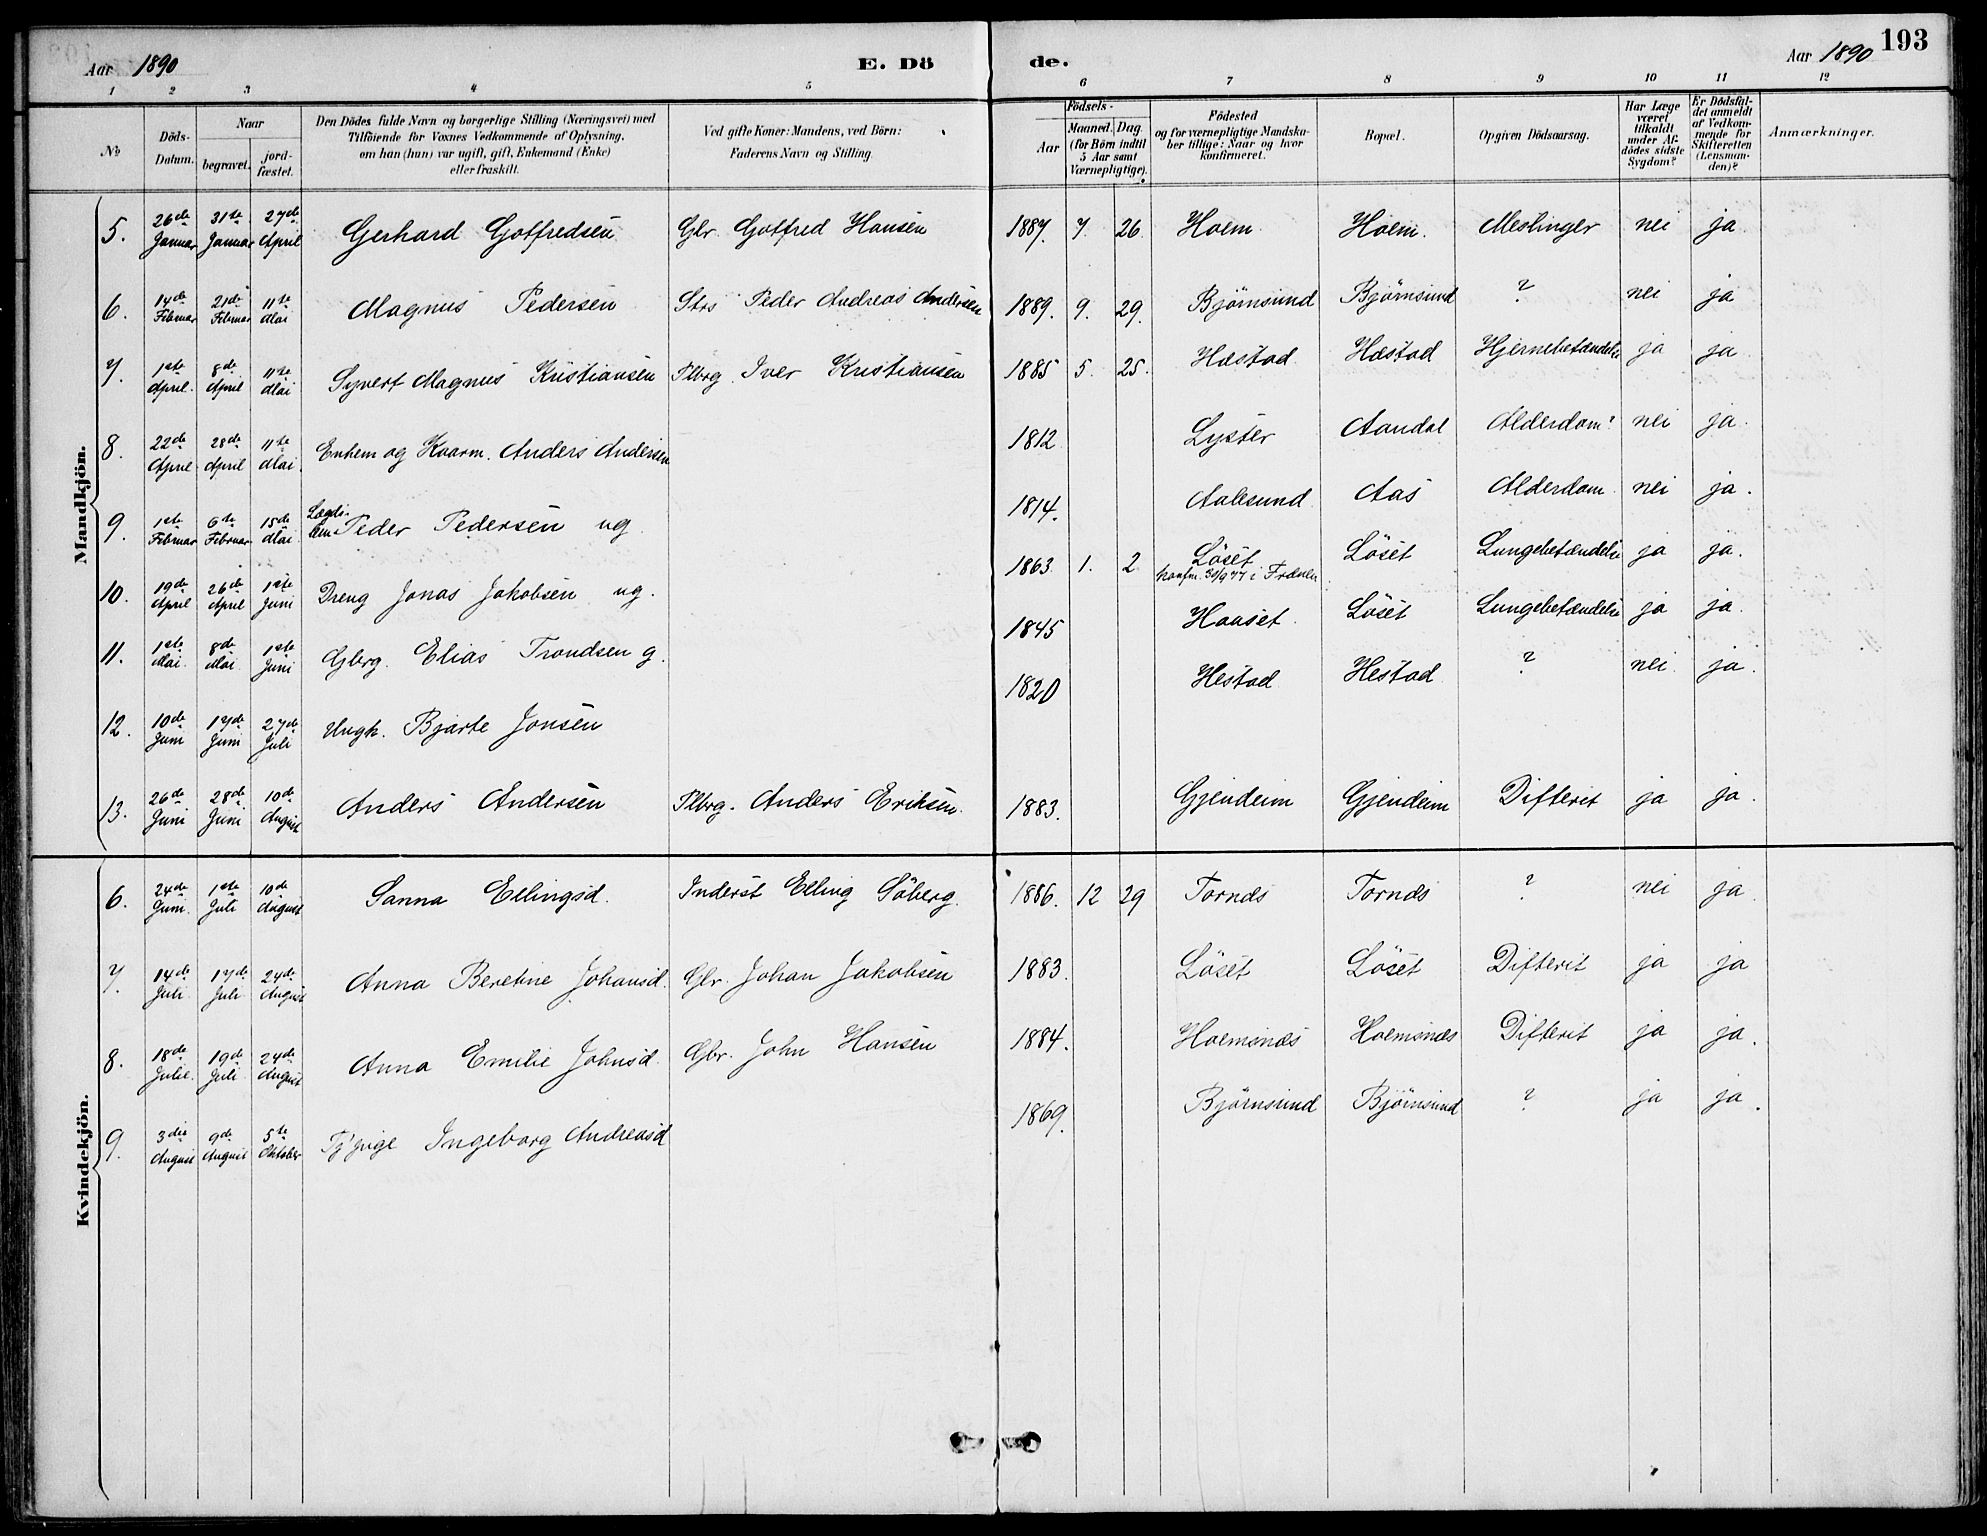 Aar 1890
E. Dö
de.
Aar 1890
193
1 2 3 4 5 6 7 8 9 10 11 12
№
Döds-
Datum.
Naar
begravet.
jord-
fæstet.
Den Dödes fulde Navn og borgerlige Stilling (Næringsvei) med
Tilföiende for Voxnes Vedkommende af Oplysning,
om han (hun) var ugift, gift, Enkemand (Enke)
eller fraskilt.
Ved gifte Koner: Mandens, ved Börn:
Faderens Navn og Stilling.
Födsels-
Aar
Maaned. Dag
(for Börn indtil
5 Aar samt
Værnepligtige).
Födested
og for værnepligtige Mandska-
ber tillige: Naar og hvor
konfirmeret.
Bopæl.
Opgiven Dödsaarsag.
Har Læge
været
tilkaldt
under Af-
dödes sidste
Sygdom?
Er Dödsfal-
det anmeldt
af Vedkom-
mende for
Skifteretten
(Lensman-
den)?
Anmærkninger.
Mandkjön.
5. 26de Januar 31te Januar 27de April Gerhard Gotfredsen Gbr. Gotfred Hansen 1889. 7. 26. Holm Holm. Meslinger nei ja.
6. 14de Februar 21de Februar 11te Mai Magnus Pedersen Strs Peder Andreas Andersen 1889. 9. 29. Björnsund Björnsund ? nei ja
7. 1ste April. 8de April 11te Mai Syvert Magnus Kristiansen Plbrg. Iver Kristiansen 1885 5. 25. Hæstad Hæstad Hjernebetændelse ja ja
8. 22de April 28de April 11te Mai. Enkem og Kaarm. Anders Andersen 1812 Lyster Aandal Alderdom? nei ja.
9. 1ste Februar 6te Februar 15de Mai Lægds- lem Peder Pedersen ug 1814. Aalesund Aas Alderdom nei ja.
10. 19de April 26de April 1ste Juni Dreng Jonas Jakobsen ug. 1863 1. 2 Löset konfm. 30/9 77 i Frænen Löset Lungebetændelse ja ja.
11. 1ste Mai. 8de Mai 1ste Juni Gbrg. Elias Trondsen g. 1845 Hauset Löset Lungebetændelse ja ja.
12. 10de Juni 17de Juni 27de Juli Ungk. Bjarte Jonsen 1820 Hestad Hestad ? nei ja.
13. 26de Juni 28de Juni 10de August Anders Andersen Plbrg. Anders Eriksen. 1883. Gjendeim Gjendeim Difterit ja ja.
Kvindekjön.
6. 24de Juni. 1ste Juli 10de August Sanna Ellingsd. Inderst Elling Söberg. 1886. 12 29 Tornæs Tornæs ? nei ja
7. 14de Juli 17de Juli 24de August Anna Beretine Johansd. Gbr. Johan Jakobsen 1883. Löset Löset Difterit ja ja
8. 18de Julie. 19de Juli 24de August Anna Emilie Johnsd. Gbr. John Hansen 1884. Holmsnæs Holmsnæs Difterit ja ja.
9. 3die August 9de August 5te Oktober Tj'pige Ingeborg Andreasd 1869. Björnsund Björnsund ? ja ja.